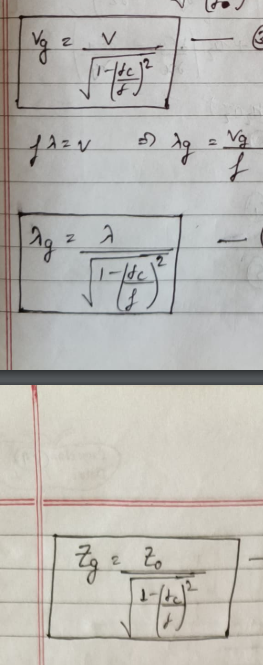 v_g = v / √(1-(fc/f)²) —
fλ = v ⇒ λ_g = v_g / f
λ_g = λ / √(1-(fc/f)²) —
Z_g = Z_0 / √(1-(fc/f)²) —